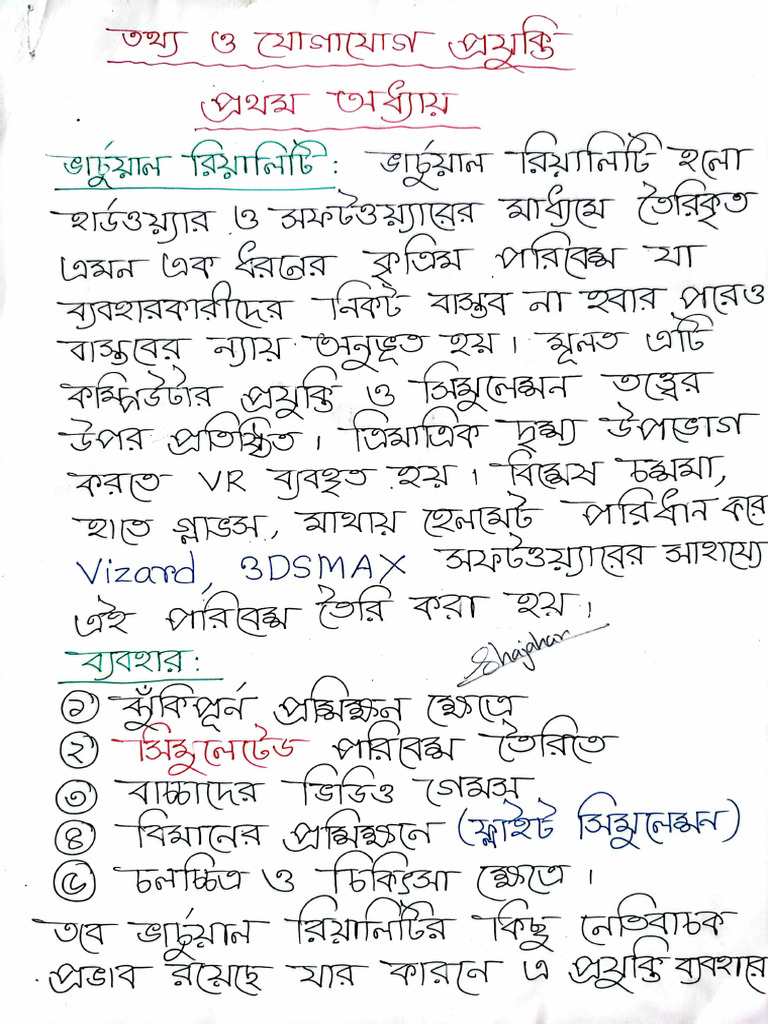 তথ্য ও যোগাযোগ প্রযুক্তি
প্রথম অধ্যায়
ভার্চুয়াল রিয়ালিটি : ভার্চুয়াল রিয়ালিটি হলো
হার্ডওয়্যার ও সফটওয়্যারের মাধ্যমে তৈরিকৃত
এমন এক ধরনের কৃত্রিম পরিবেশ যা
ব্যবহারকারীদের নিকট বাস্তব না হবার পরেও
বাস্তবের ন্যায় অনুভূত হয়। মূলত এটি
কম্পিউটার প্রযুক্তি ও সিমুলেশন তত্ত্বের
উপর প্রতিষ্ঠিত। ত্রিমাত্রিক দৃশ্য উপভোগ
করতে VR ব্যবহৃত হয়। বিশেষ চশমা,
হাতে গ্লাভস, মাথায় হেলমেট পরিধান করে
Vizard, 3DSMAX সফটওয়্যারের সাহায্যে
এই পরিবেশ তৈরি করা হয়।
Shajahan
ব্যবহার :
১ ঝুঁকিপূর্ন প্রশিক্ষন ক্ষেত্রে
২ সিমুলেটেড পরিবেশ তৈরিতে
৩ বাচ্চাদের ভিডিও গেমস
৪ বিমানের প্রশিক্ষনে (ফ্লাইট সিমুলেশন)
৫ চলচ্চিত্র ও চিকিৎসা ক্ষেত্রে।
তবে ভার্চুয়াল রিয়ালিটির কিছু নেতিবাচক
প্রভাব রয়েছে যার কারনে এ প্রযুক্তি ব্যবহারে